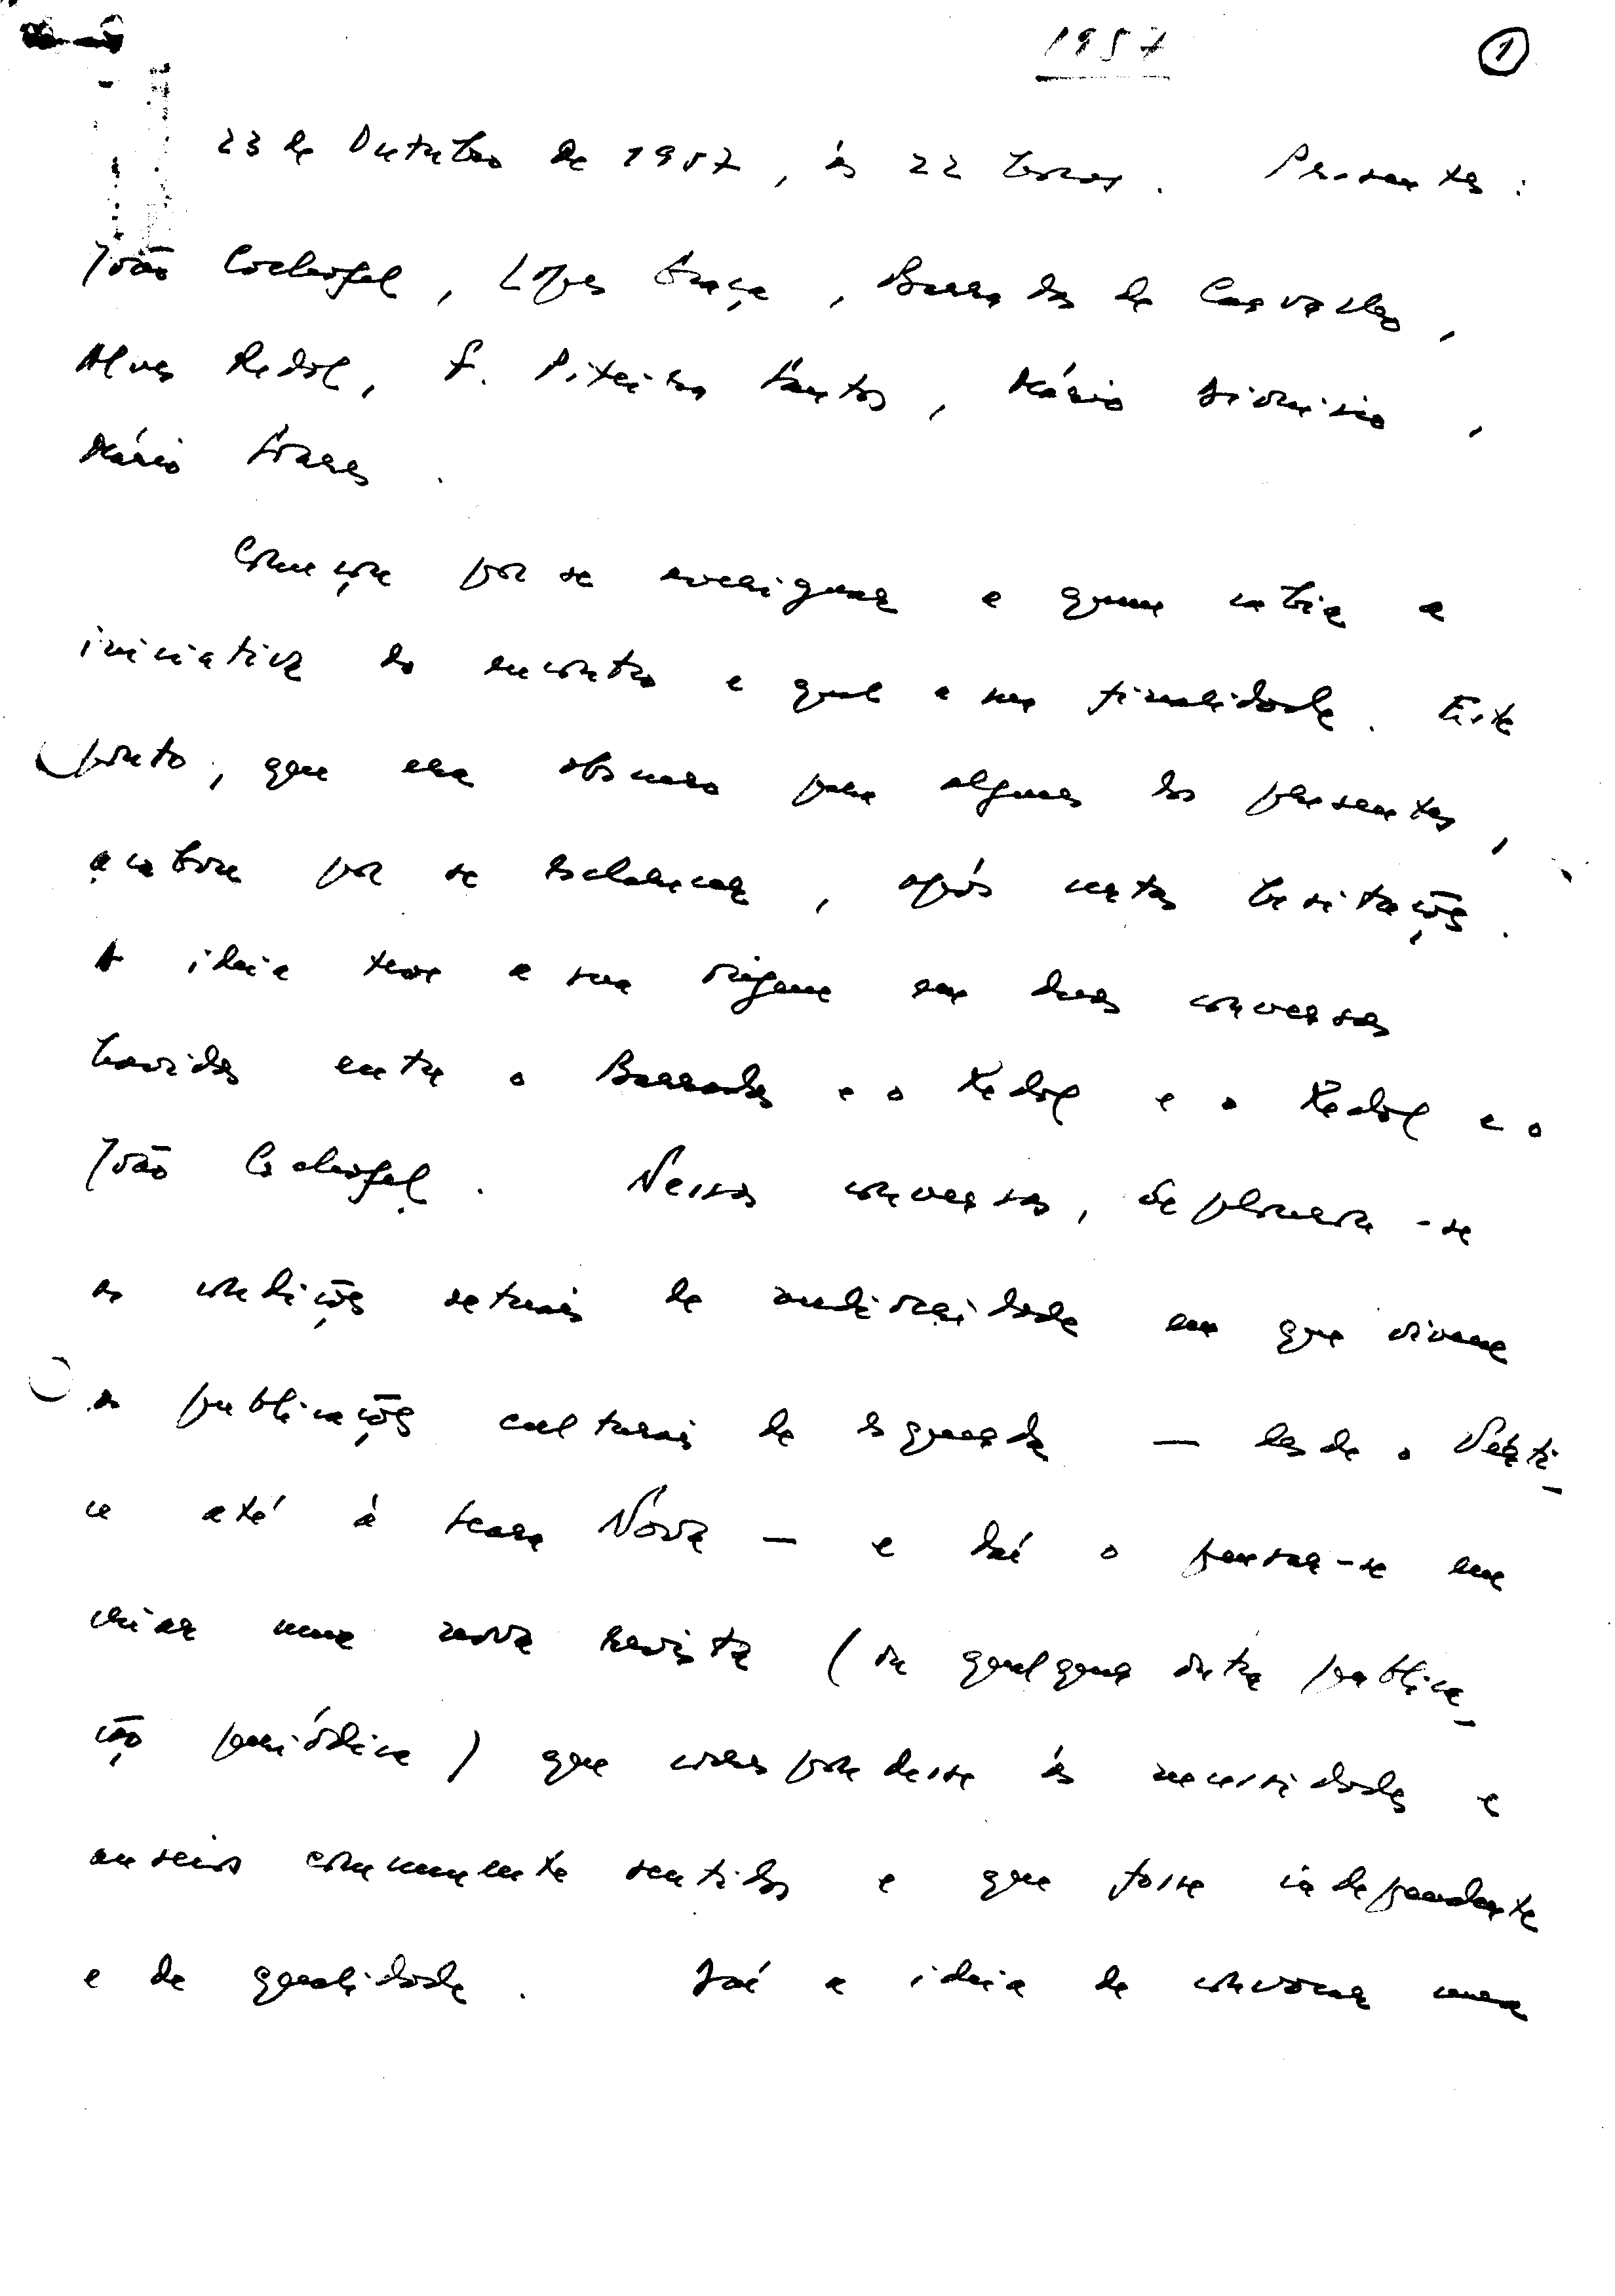 1957
①
23 de Outubro de 1957, às 22 horas. Presentes:
João Cochofel, Lopes Graça, Barradas de Carvalho,
Alves Redol, F. Piteira Santos, Mário Dionísio,
Mário Soares.
Começou por se averiguar a quem cabia a
iniciativa do encontro e qual a sua finalidade. Este
ponto, que era obscuro para alguns dos presentes,
acabou por se esclarecer, após certas hesitações.
A ideia teve a sua origem em duas conversas
havidas entre o Barradas e o Redol e o Redol e o
João Cochofel. Nessas conversas, deplorou-se
as condições actuais de mediocridade em que vivem
as publicações culturais de esquerda — desde o Vérti-
ce até à Seara Nova — e daí o pensar-se em
criar uma nova revista (ou qualquer outra publica-
ção periódica) que correspondesse às necessidades e
anseios comummente sentidos e que fosse independente
e de qualidade. Daí a ideia de convocar uma